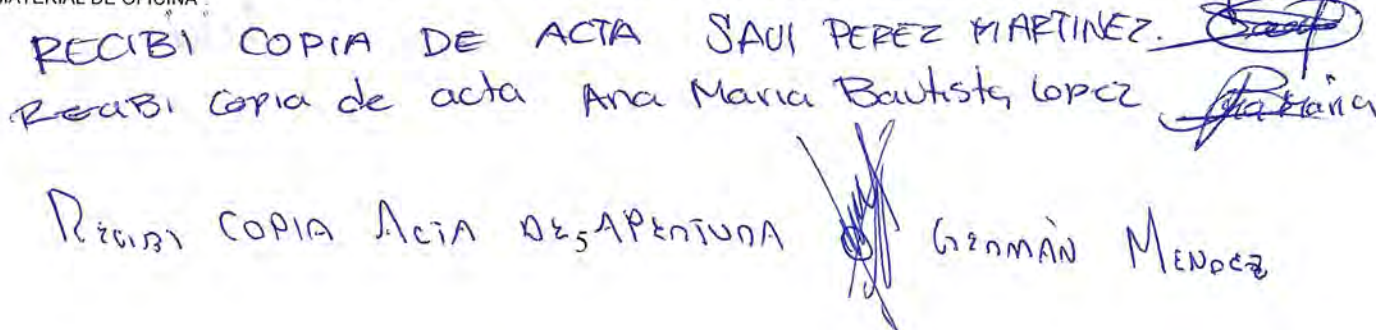 MATERIAL DE OFICINA
RECIBI COPIA DE ACTA SAUL PEREZ MARTINEZ.
RECIBI Copia de acta Ana Maria Bautista Lopez Ana Maria
RECIBI COPIA ACTA DE APERTURA GERMÁN MENDEZ